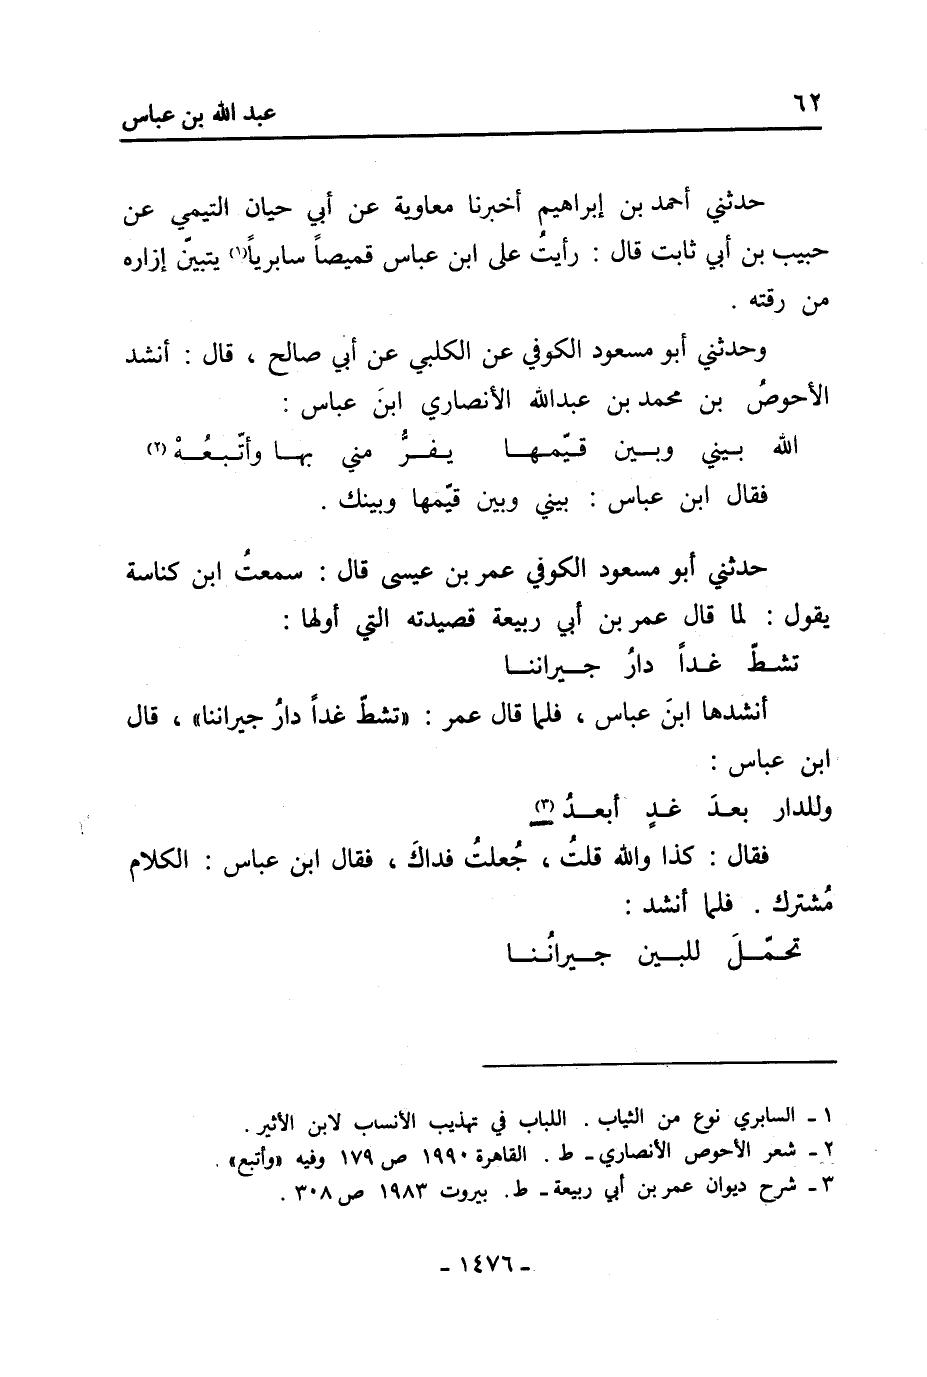 ٦٢
عبد الله بن عباس
حدثني أحمد بن إبراهيم أخبرنا معاوية عن أبي حيان التيمي عن
حبيب بن أبي ثابت قال : رأيتُ على ابن عباس قميصاً سابرياً(١) يتبينّ إزاره
من رقته .
وحدثني أبو مسعود الكوفي عن الكلبي عن أبي صالح ، قال : أنشد
الأحوصُ بن محمد بن عبدالله الأنصاري ابنَ عباس :
الله بيني وبين قيّمها يفرُّ مني بها وأتّبعُهْ (٢)
فقال ابن عباس : بيني وبين قيّمها وبينك .
حدثني أبو مسعود الكوفي عمر بن عيسى قال : سمعتُ ابن كناسة
يقول : لما قال عمر بن أبي ربيعة قصيدته التي أولها :
تشطّ غداً دارُ جيراننا
أنشدها ابنَ عباس ، فلما قال عمر : «تشطّ غداً دارُ جيراننا» ، قال
ابن عباس :
وللدار بعدَ غدٍ أبعدُ (٣)
فقال : كذا والله قلتُ ، جُعلتُ فداكَ ، فقال ابن عباس : الكلام
مُشترك . فلما أنشد :
تحمّلَ للبين جيرانُنا
١ - السابري نوع من الثياب . اللباب في تهذيب الأنساب لابن الأثير .
٢ - شعر الأحوص الأنصاري - ط . القاهرة ١٩٩٠ ص ١٧٩ وفيه «وأتبع» .
٣ - شرح ديوان عمر بن أبي ربيعة - ط. بيروت ١٩٨٣ ص ٣٠٨ .
- ١٤٧٦ -